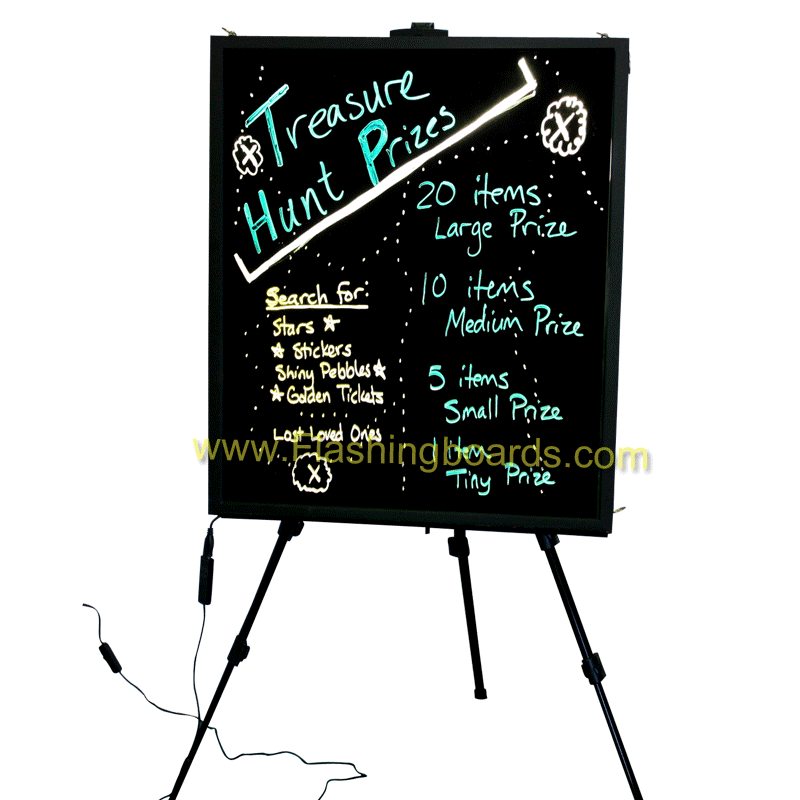 Treasure
Hunt Prizes
X
X
20 items
Large Prize
10 items
Medium Prize
5 items
Small Prize
1 item
Tiny Prize
Search for:
Stars
Stickers
Shiny Pebbles
Golden Tickets
Lost Loved Ones
X
www.Flashingboards.com